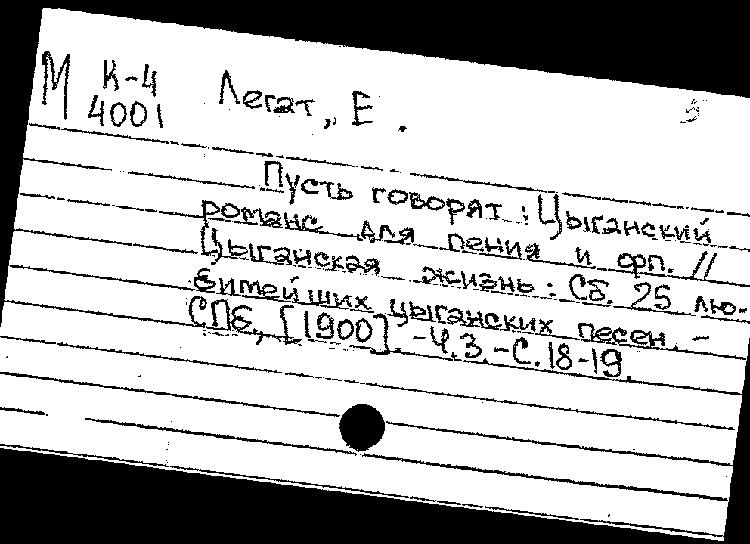 М К-4 Легат, Е.
4001
Пусть говорят: Цыганский
романс для пения и фп. //
Цыганская жизнь: Сб. 25 лю-
битейших цыганских песен. -
СПб., [1900]. - Ч.3. - С.18-19.